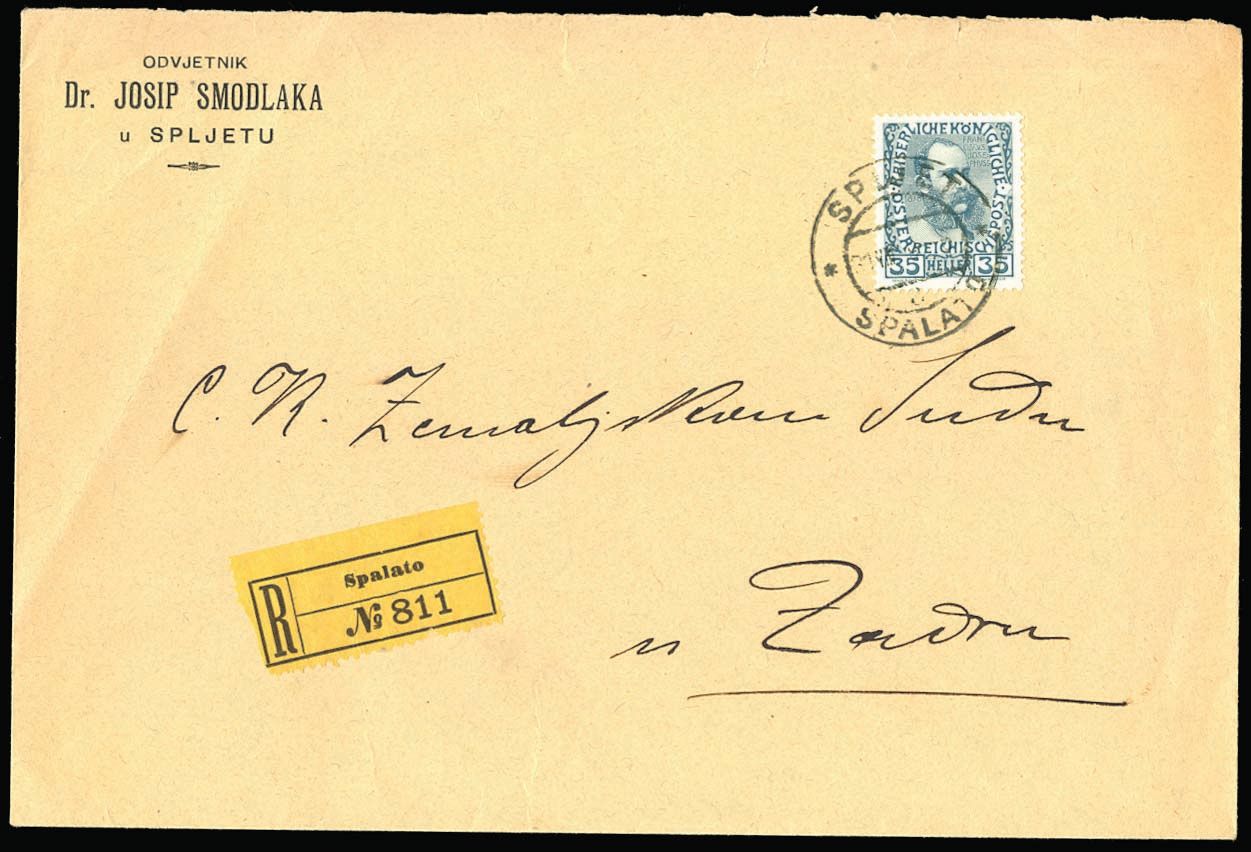 ODVJETNIK
Dr. JOSIP SMODLAKA
u SPLJETU
KAISERLICHE KÖNIGLICHE
ÖSTERREICHISCHE POST
FRAN
JOSE
PHVS
35 HELLER 35
SPLJET
SPALATO
C. K. Zemaljskom Sudu
R
Spalato
№ 811
u Zadru